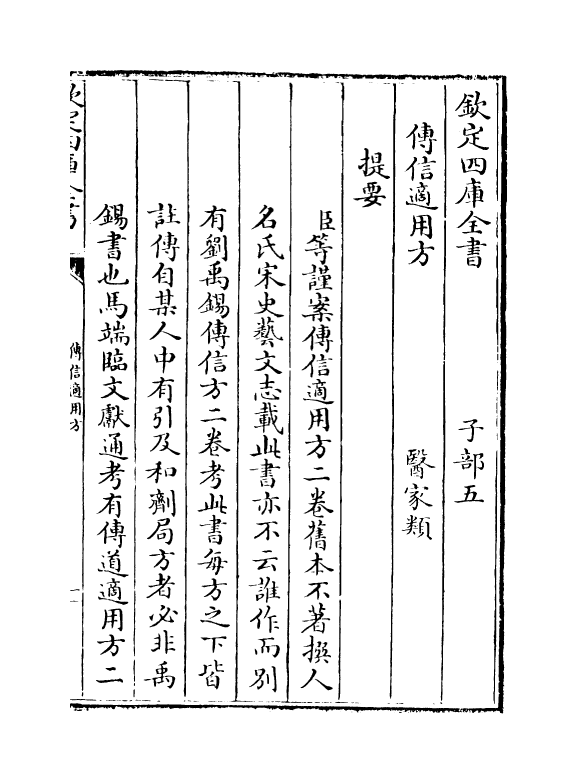 欽定四庫全書　子部五
傳信適用方　醫家類
提要
臣等謹案傳信適用方二卷舊本不著撰人
名氏宋史藝文志載此書亦不云誰作而別
有劉禹錫傳信方二卷考此書每方之下皆
註傳自某人中有引及和劑局方者必非禹
錫書也馬端臨文獻通考有傳道適用方二
欽定四庫全書　傳信適用方　一